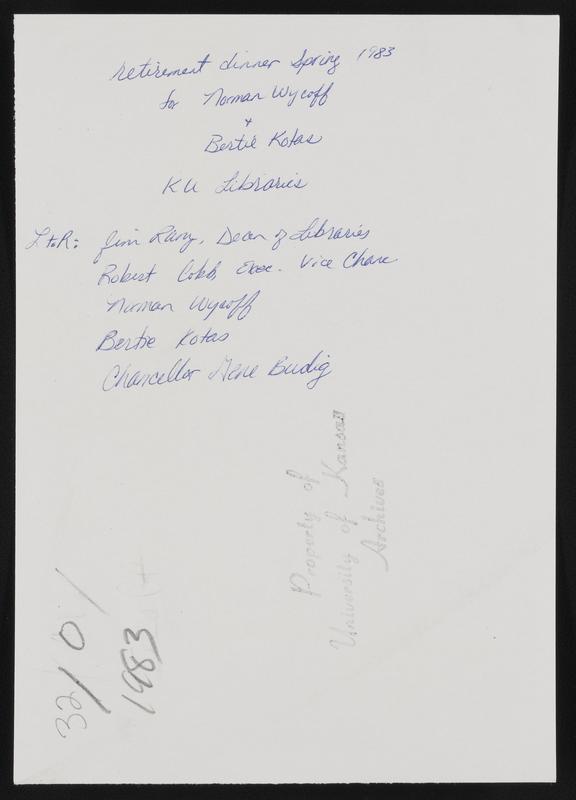 retirement dinner Spring 1983
for Norman Wycoff
+
Bertie Kotas
KU Libraries
L to R: Jim Ranz, Dean of Libraries
Robert Cobb, Exec. Vice Chanc
Norman Wycoff
Bertie Kotas
Chancellor Gene Budig
Property of
University of Kansas
Archives
32/0/
1983